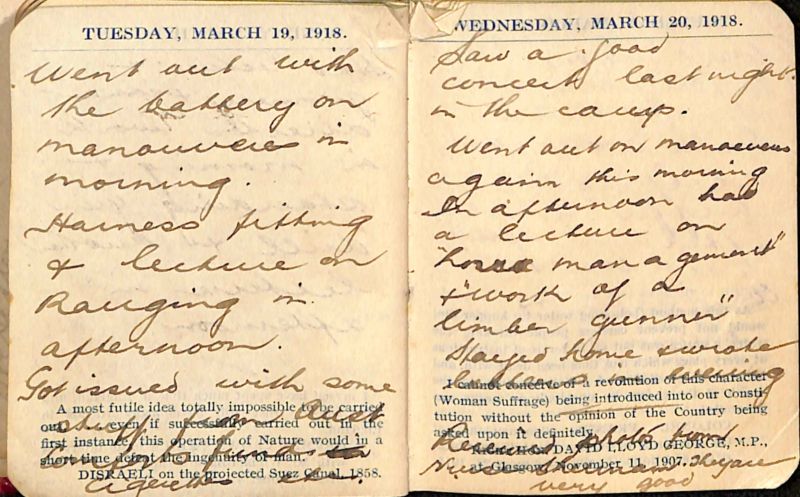 TUESDAY, MARCH 19, 1918.
Went out with
the battery on
manouveres in
morning.
Harness fitting
& lecture on
Ranging in
afternoon.
Got issued with some
A most futile idea totally impossible to be carried
out, even if successfully carried out in the
first instance, this operation of Nature would in a
short time defeat the ingenuity of man.
DISRAELI on the projected Suez Canal, 1858.
WEDNESDAY, MARCH 20, 1918.
Saw a good
concert last night
in the camp.
Went out on manaevers
again this morning
In afternoon had
a lecture on
"horse management"
& "work of a
limber gunner"
Stayed home & wrote
evening
I cannot conceive of a revolution of this character
(Woman Suffrage) being introduced into our Consti-
tution without the opinion of the Country being
asked upon it definitely.
Received photo from
RT. HON. DAVID LLOYD GEORGE, M.P.,
at Glasgow, November 11, 1907.
They are
very good